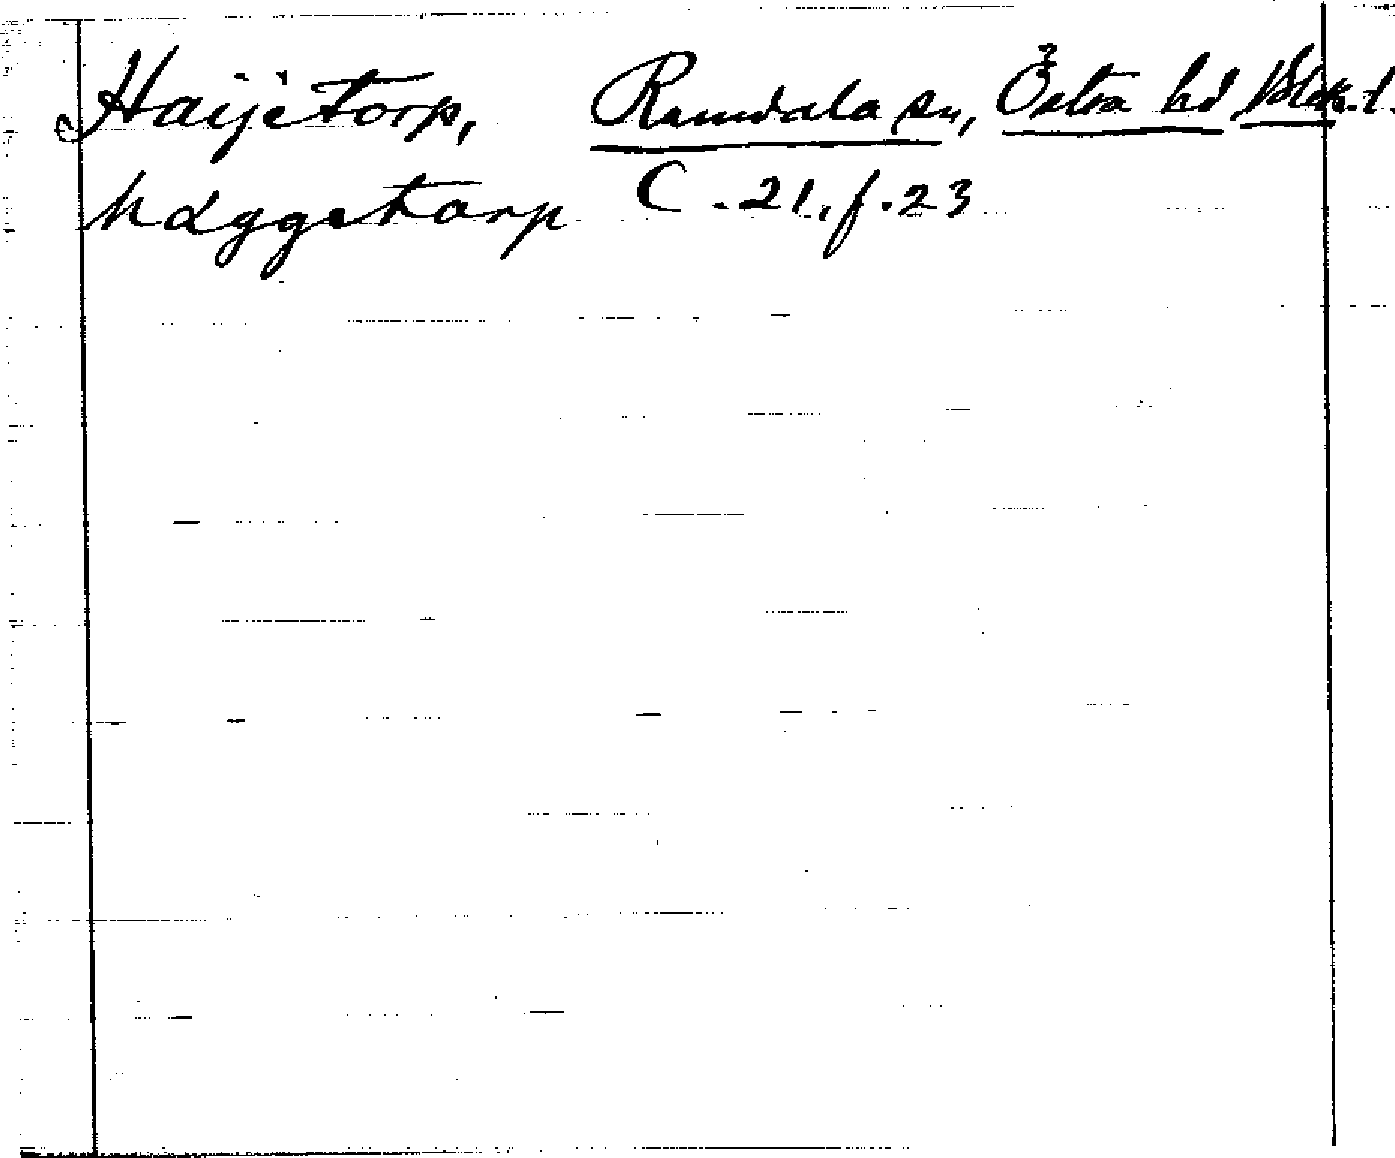 Haijetorp, Ramdala sn, Östra hd Blek.l.
Häggetorp C.21.f.23